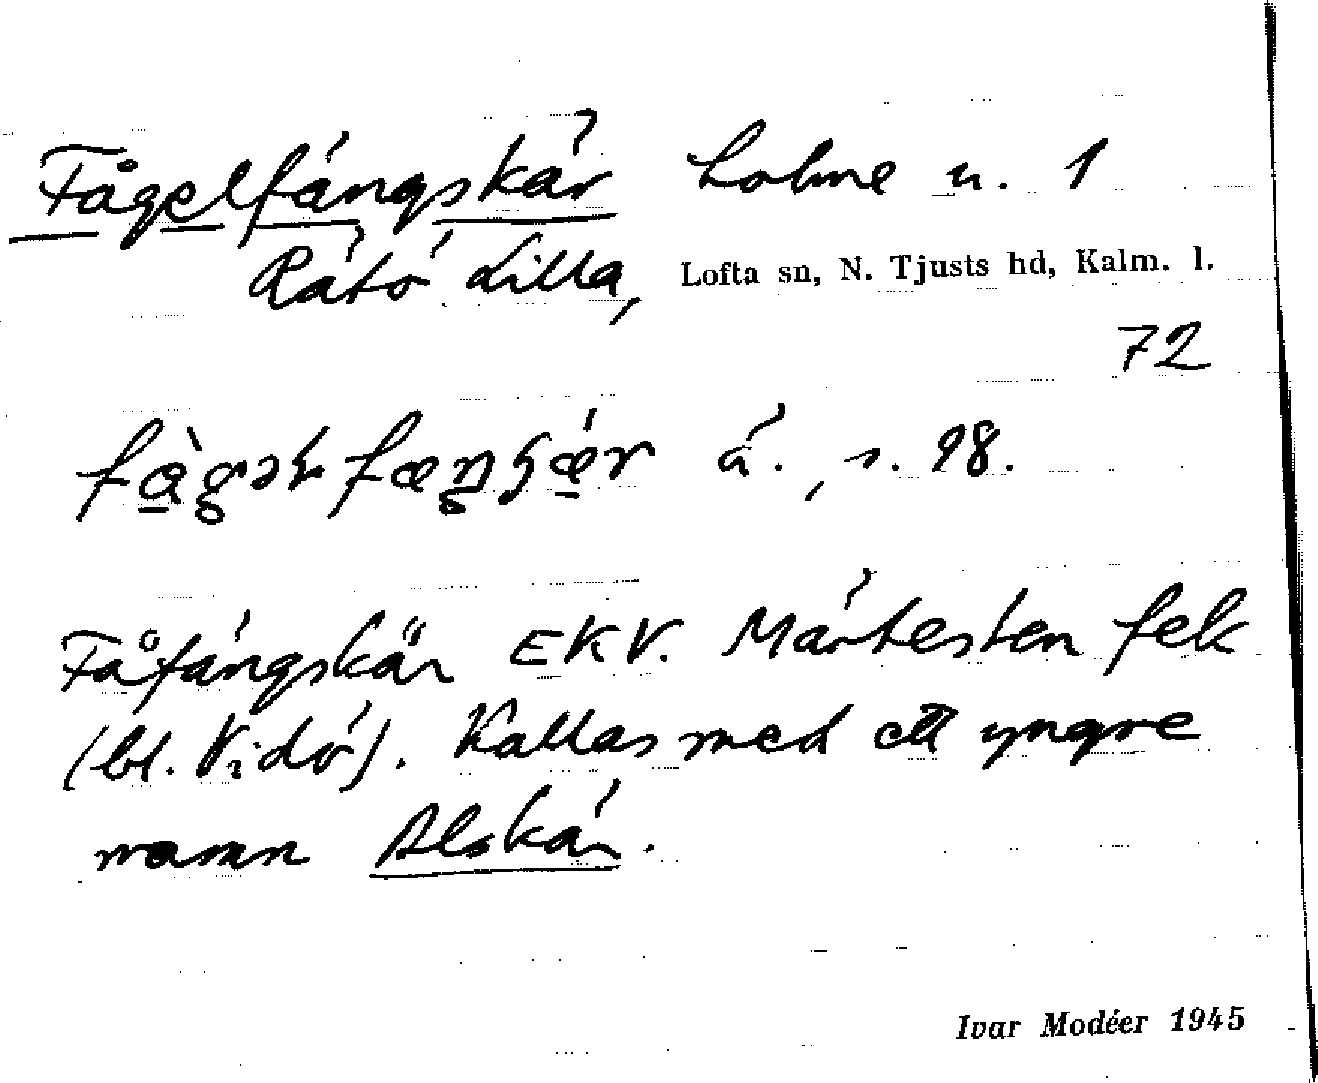 Fågelfångskär holme n. 1
Rätö Lilla, Lofta sn, N. Tjusts hd, Kalm. l.
72
ä., s. 98.
Fåfängskär EKV. Märtesten fek
(bl. Vidö). Kallas med ett yngre
namn Alskär.
Ivar Modéer 1945